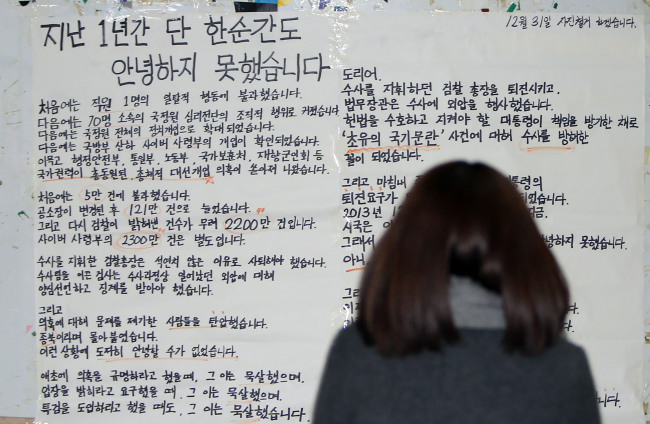 지난 1년간 단 한순간도
안녕하지 못했습니다
처음에는 직원 1명의 일탈적 행동에 불과했습니다.
다음에는 70명 소속의 국정원 심리전단의 조직적 행위로 커졌습니다
다음에는 국정원 전체의 정치개입으로 확대되었습니다.
다음에는 국방부 산하 사이버 사령부의 개입이 확인되었습니다.
이윽고 행정안전부, 통일부, 노동부, 국가보훈처, 재향군인회 등
국가권력이 총동원된 총체적 대선개입 의혹이 쏟아져 나왔습니다.
처음에는 5만 건에 불과했습니다.
공소장이 변경된 후 121만 건으로 늘었습니다.
그리고 다시 검찰이 밝혀낸 건수가 무려 2200만 건입니다.
사이버 사령부의 2300만 건은 별도입니다.
수사를 지휘한 검찰총장은 석연치 않은 이유로 사퇴해야 했습니다.
수사팀을 이끈 검사는 수사과정상 일어났던 외압에 대해
양심선언하고 징계를 받아야 했습니다.
그리고
의혹에 대해 문제를 제기한 사람들을 탄압했습니다.
종북이라며 몰아붙였습니다.
이런 상황에 도저히 안녕할 수가 없었습니다.
애초에 의혹을 규명하라고 했을때, 그 이는 묵살했으며,
입장을 밝히라고 요구했을 때, 그 이는 묵살했으며,
특검을 도입하라고 했을 때도, 그 이는 묵살했습니다.
12월 31일 자진철거 하겠습니다.
도리어,
수사를 지휘하던 검찰 총장을 퇴진시키고,
법무장관은 수사에 외압을 행사했습니다.
헌법을 수호하고 지켜야 할 대통령이 책임을 방기한 채로
'초유의 국기문란' 사건에 대해 수사를 방해한
꼴이 되었습니다.
그리고 마침내 통령의
퇴진요구가 었습니다.
2013년 1 지금,
시국은
그래서 녕하지 못했습니다.
아니
그리
니다.